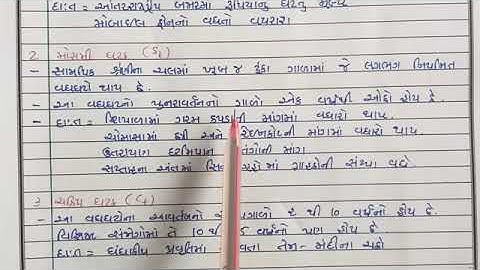 દા:ત = આંતરરાષ્ટ્રીય બજારમાં રૂપિયાનું ઘટતું મૂલ્ય
મોબાઇલ ફોનનો વધતો વપરાશ
2. મોસમી વધઘટ (St)
- સામયિક શ્રેણીના ચલમાં ખૂબ જ ટૂંકા ગાળામાં જે લગભગ નિયમિત
વધઘટો થાય છે.
- આ વધઘટનો પુનરાવર્તનનો ગાળો એક વર્ષથી ઓછો હોય છે.
- દા:ત = શિયાળામાં ગરમ કપડાંની માંગમાં વધારો થાય.
ચોમાસામાં છત્રી અને રેઇનકોટની માંગમાં વધારો થાય.
ઉતરાયણ દરમિયાન પતંગોની માંગ
સપ્તાહના અંતમાં ગ્રાહકોની સંખ્યા વધે.
3. ચક્રિય વધઘટ (Ct)
- આ વધઘટોના આવર્તનનો સમયગાળો 2 થી 10 વર્ષનો હોય છે.
વિશિષ્ટ સંજોગોમાં તે 10 થી 15 વર્ષનો પણ હોય છે.
દા:ત = ધંધાકીય પ્રવૃત્તિમાં આવતા તેજી-મંદીના ચક્રો